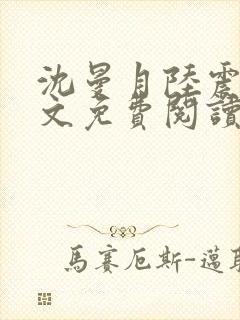 沈曼自陸震
文免費閱讀
馬賽厄斯-邁耶